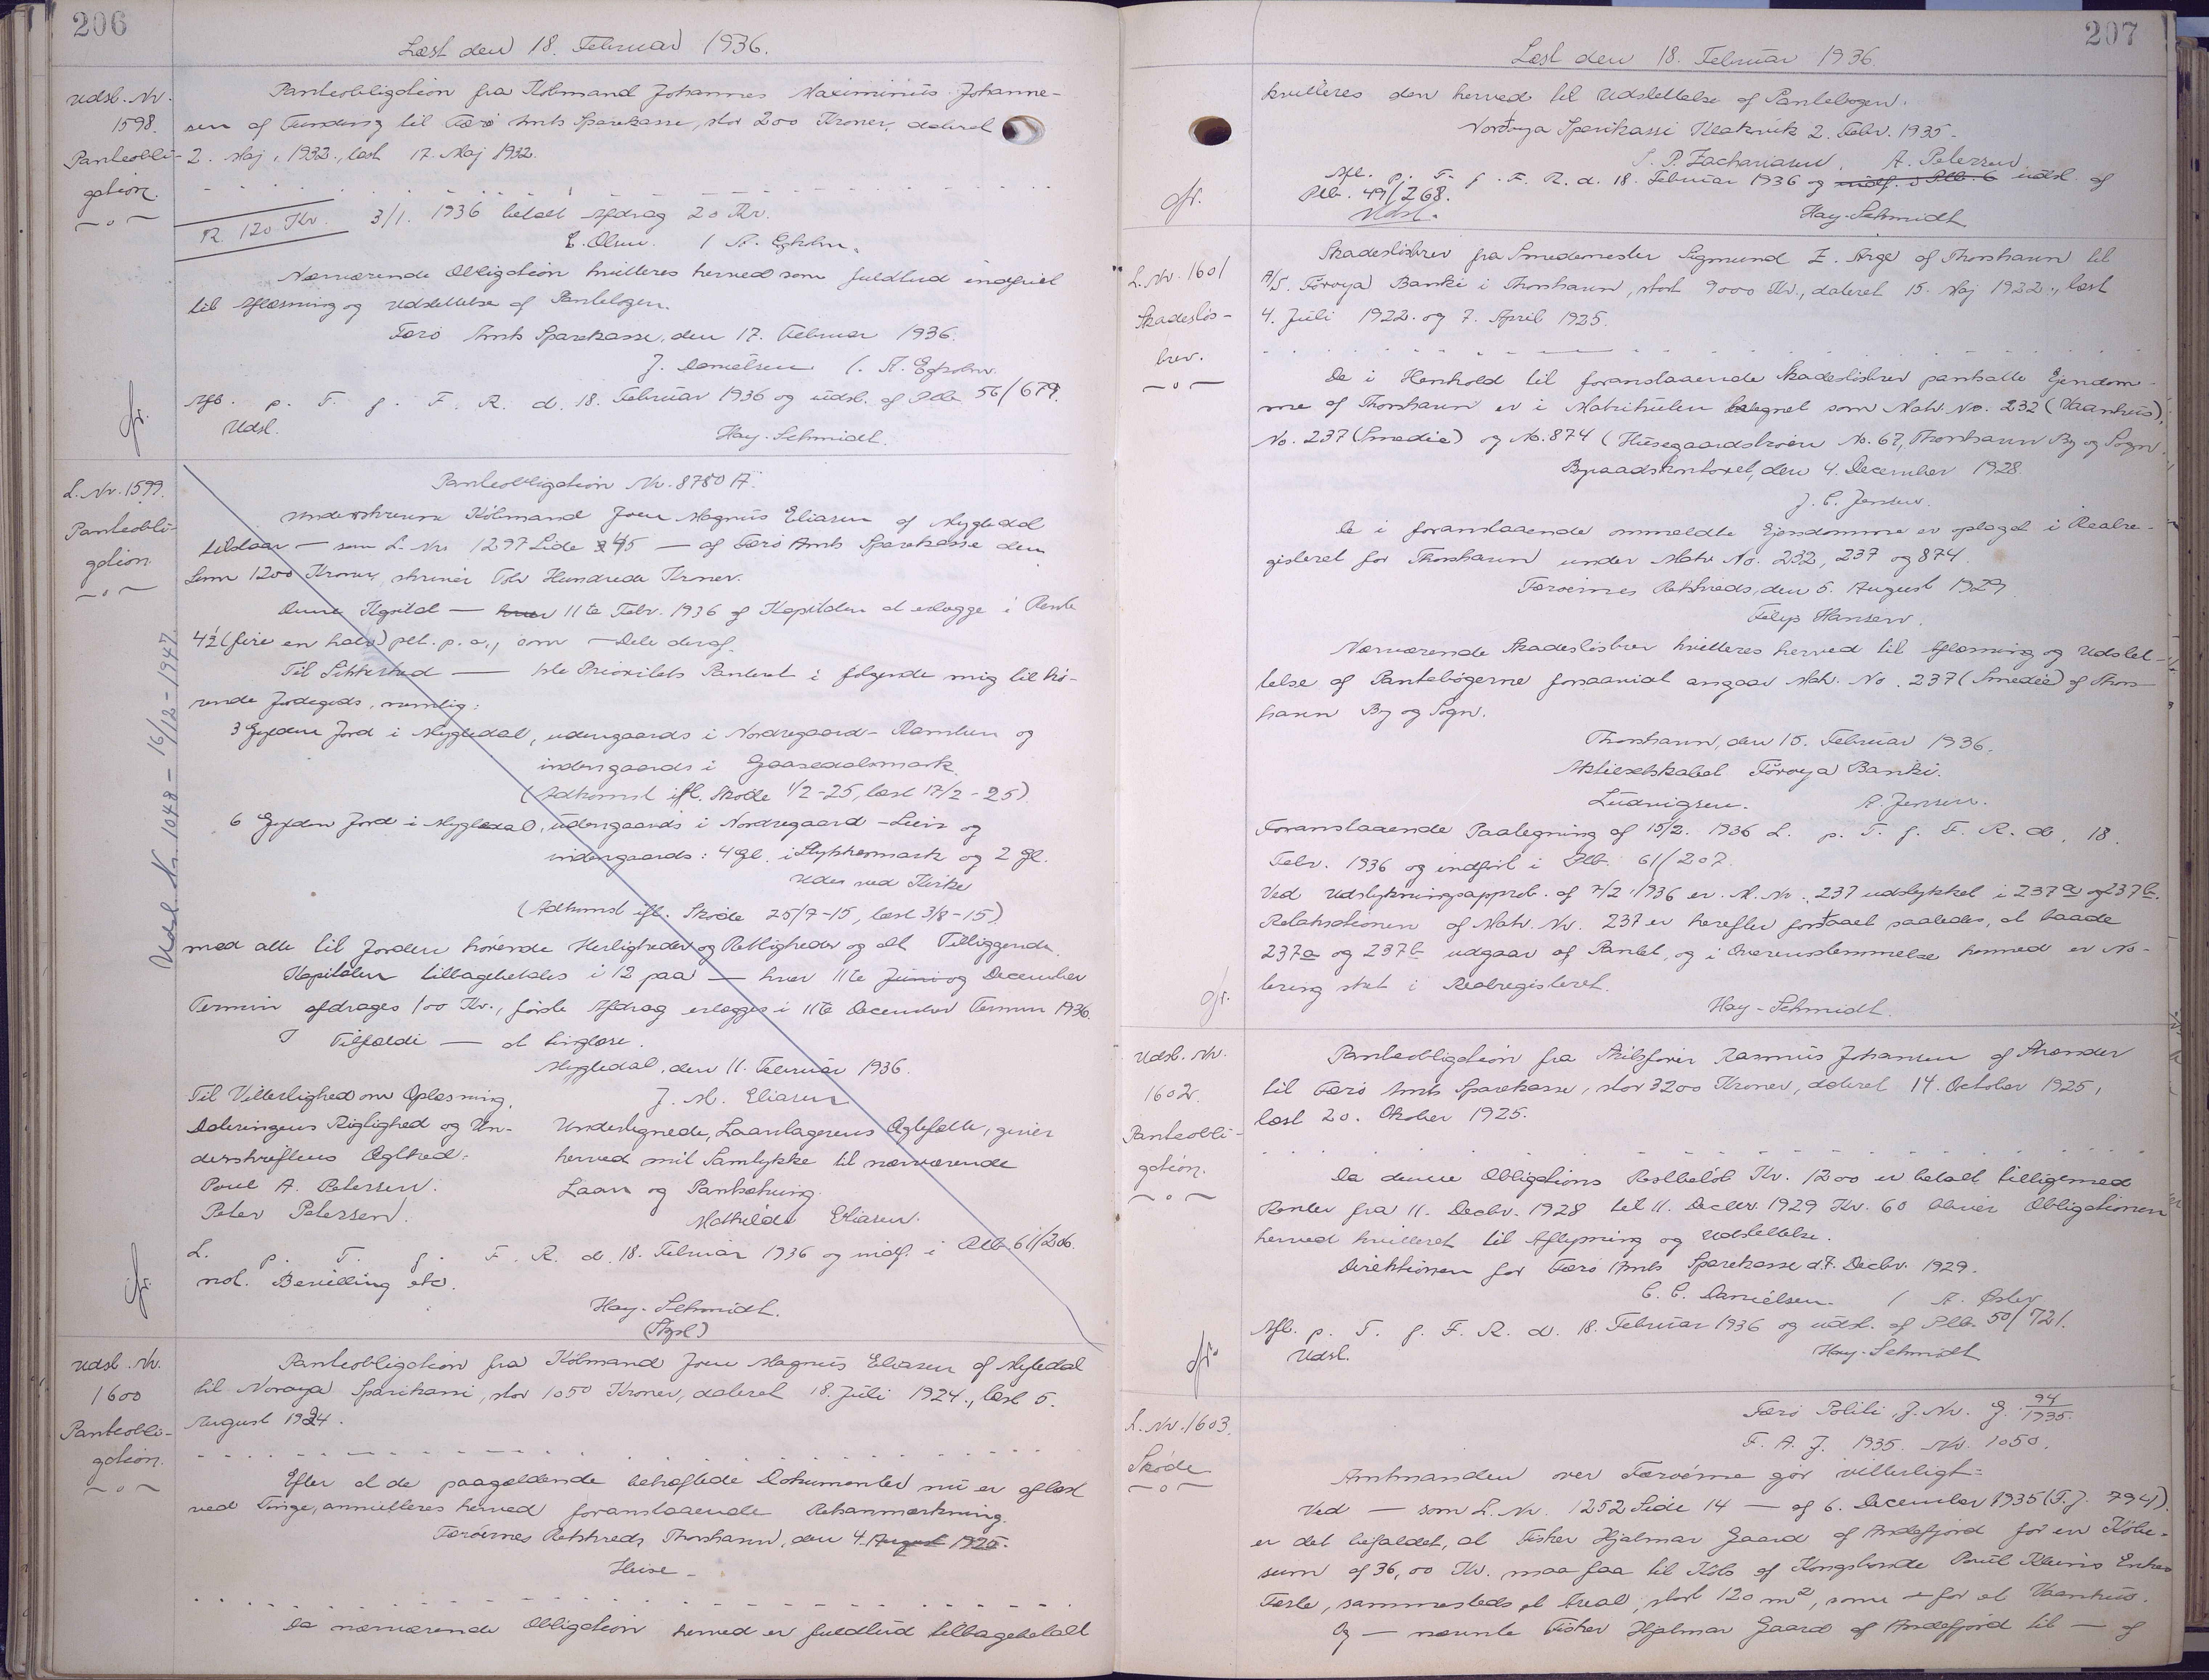 206
Læst den 18. Februar 1936.
Udsl. Nr.
1598.
Pantebobli-
gation.
Panteobligation fra Købmand Johannes Maximinus Johanne-
sen af Funding til Færø Amts Sparekasse, stor 200 Kroner, dateret
2. Maj 1932., læst 17. Maj 1932.
R. 120 Kr. 3/1. 1936 betalt Afdrag 20 Kr.
E. Olsen. / A. Egholm.
Nærværende Obligation kvitteres herved som fuldtud indfriet
til Aflæsning og Udslettelse af Pantebogen.
Færø Amts Sparekasse, den 17. Februar 1936.
J. Danielsen /. A. Egholm.
Afl. p. T. f. F. R. d. 18. Februar 1936 og udsl. af Pltb. 56/679.
Udsl.
Hay-Schmidt.
L. Nr. 1599.
Panteobli-
gation.
Udsl. Nr. 1048 - 16/12-1947.
Panteobligation Nr. 8780 A.
Underskrevne Købmand Joen Magnus Eliasen af Mygledal
tilstaar — som L. Nr. 1297 Side 345 — af Færø Amts Sparekasse den
Sum 1200 Kroner, skriver Tolv Hundrede Kroner.
Denne Kapital — hver 11te Febr. 1936 af Kapitalen at erlægge i Rente
4½ (fire en halv) pCt. p. a., som — Dele deraf.
Til Sikkerhed — 1ste Prioritets Panteret i følgende mig tilhø-
rende Jordegods, nemlig:
3 Gylden Jord i Mygledal, udengaards i Nordregaard - Ramlien og
indengaards i Gaasedalsmark
(Adkomst ifl. Skøde 1/2-25, læst 17/2-25)
6 Gylden Jord i Mygledal, udengaards i Nordregaard - og
indengaards: 4 Gl. i Stykkesmark og 2 Gl.
Uder ved Kirke
(Adkomst ifl. Skøde 25/7-15, læst 3/8-15)
med alle til Jorden hørende Herligheder og Rettigheder og alt Tilliggende.
Kapitalen tilbagebetales i 12 paa — hver 11te Juni og December
Termin afdrages 100 Kr., første Afdrag erlægges i 11te December Termin 1936.
I Tilfælde — at tinglæse.
Mygledal, den 11. Februar 1936.
Til Vitterlighed om Oplæsning,
Dateringens Rigtighed og Un-
derskriftens Ægthed:
Poul A. Petersen.
Peter Petersen.
J. M. Eliasen
Undertegnede, Laantagerens Ægtefælle, giver
herved mit Samtykke til nærværende
Laan og Pantsætning.
Mathilda Eliasen.
L. p. T. f. F. R. d. 18. Februar 1936 og indf. i Pltb. 61/206.
not. Bevilling etc.
Hay-Schmidt.
Udsl. Nr.
1600
Panteobli-
gation.
Panteobligation fra Købmand Joen Magnus Eliasen af Myledal
til Noroya Sparikassi, stor 1050 Kroner, dateret 18. Juli 1924., læst 5.
August 1924.
Efter at de paagældende behæftede Dokumenter nu er aflæst
ved Tinge, annulleres herved foranstaaende Retsanmærkning.
Færøernes Retskreds Thorshavn, den 4. August 1925.
Heise
Da nærværende Obligation herved er fuldtud tilbagebetalt
207
Læst den 18. Februar 1936.
kvitteres den herved til Udslettelse af Pantebogen.
Norðoya Sparikassi Klaksvik 2. Febr. 1935.
S. P. Zachariasen, A. Petersen
Afl. p. T. f. F. R. d. 18. Februar 1936 og indf. i Pltb. 6 udsl. af
Pltb. 49/268.
Udsl.
Hay-Schmidt
L. Nr. 1601
Skadesløs-
brev.
Skadesløsbrev fra Smedemester Sigmund Z. Arge af Thorshavn til
A/S. Föroya Banki i Thorshavn, stort 9000 Kr., dateret 15. Maj 1922., læst
4. Juli 1922. og 7. April 1925.
De i Henhold til foranstaaende Skadesløsbrev pantsatte Ejendom-
me af Thorshavn er i Matrikulen betegnet som Matr. No. 232 (Vaanhus),
No. 237 (Smedie) og No. 874 (Husegaardstrøen No. 67, Thorshavn By og Sogn.
Byraadskontoret, den 4. December 1928.
J. C. Jensen.
De i foranstaaende ommeldte Ejendomme er optaget i Realre-
gisteret for Thorshavn under Matr. No. 232, 237 og 874.
Færøernes Retskreds, den 5. August 1929
Filip Hansen.
Nærværende Skadesløsbrev kvitteres herved til Aflæsning og Udslet-
telse af Pantebøgerne forsaavidt angaar Matr. No. 237 (Smedie) af Thors-
havn By og Sogn.
Thorshavn, den 15. Februar 1936.
Aktieselskabet Föroya Banki.
Ludvigsen. A. Jensen.
Foranstaaende Paategning af 15/2. 1936 L. p. T. f. F. R. d. 18.
Febr. 1936 og indført i Pltb. 61/207.
Ved Udstykningsapprob. af 7/2. 1936 er M. Nr. 237 udstykket i 237a og 237b.
Relaksationen af Matr. Nr. 237 er herefter forstaaet saaledes, at baade
237a og 237b udgaar af Pantet, og i Overensstemmelse hermed er No-
tering sket i Realregisteret.
Hay-Schmidt.
Udsl. Nr.
1602.
Panteobli-
gation.
Panteobligation fra Skibsfører Rasmus Johansen af Strender
til Færø Amts Sparekasse, stor 3200 Kroner, dateret 14. October 1925,
læst 20. Oktober 1925.
Da denne Obligations Restbeløb Kr. 1200 er betalt tilligemed
Renter fra 11. Decbr. 1928 til 11. Decbr. 1929 Kr. 60 bliver Obligationen
herved kvitteret til Aflysning og Udslettelse.
Direktionen for Færø Amts Sparekasse d. 7. Decbr. 1929.
C. C. Danielsen. /
Afl. p. T. f. F. R. d. 18. Februar 1936 og udsl. af Pltb. 50/721.
Udsl.
Hay-Schmidt
L. Nr. 1603.
Skøde
Færø Politi J. Nr. G. 94/1935.
F. A. J. 1935. Nr. 1050.
Amtmanden over Færøerne gør vitterligt:
Ved — som L. Nr. 1252 Side 14 — af 6. December 1935 (F. J. 794).
er det befalet, at Fisker Hjalmar Gaard af Andefjord for en Købe-
sum af 36,00 Kr. maa faa til Køb af Kongsbonde Poul Kleins Enkes
Fæste, sammesteds et Areal, stort 120 m², som — for et Vaanhus.
Og — nævnte Fisker Hjalmar Gaard af Andefjord til — af